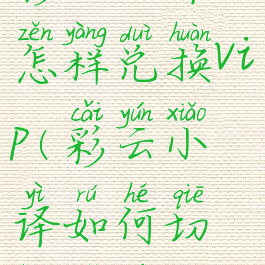 zěn yàng duì huàn
怎样兑换vi
cǎi yún xiǎo
p(彩云小
yì rú hé qiē
译如何切